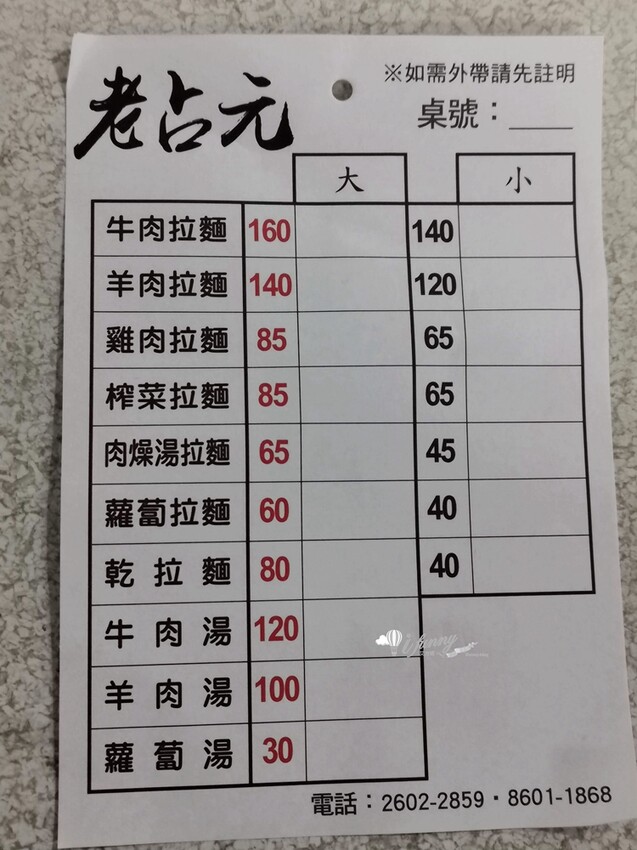 老占元
※如需外帶請先註明
桌號：____
大 小
牛肉拉麵 160 140
羊肉拉麵 140 120
雞肉拉麵 85 65
榨菜拉麵 85 65
肉燥湯拉麵 65 45
蘿蔔拉麵 60 40
乾拉麵 80 40
牛肉湯 120
羊肉湯 100
蘿蔔湯 30
yfunny
電話：2602-2859・8601-1868